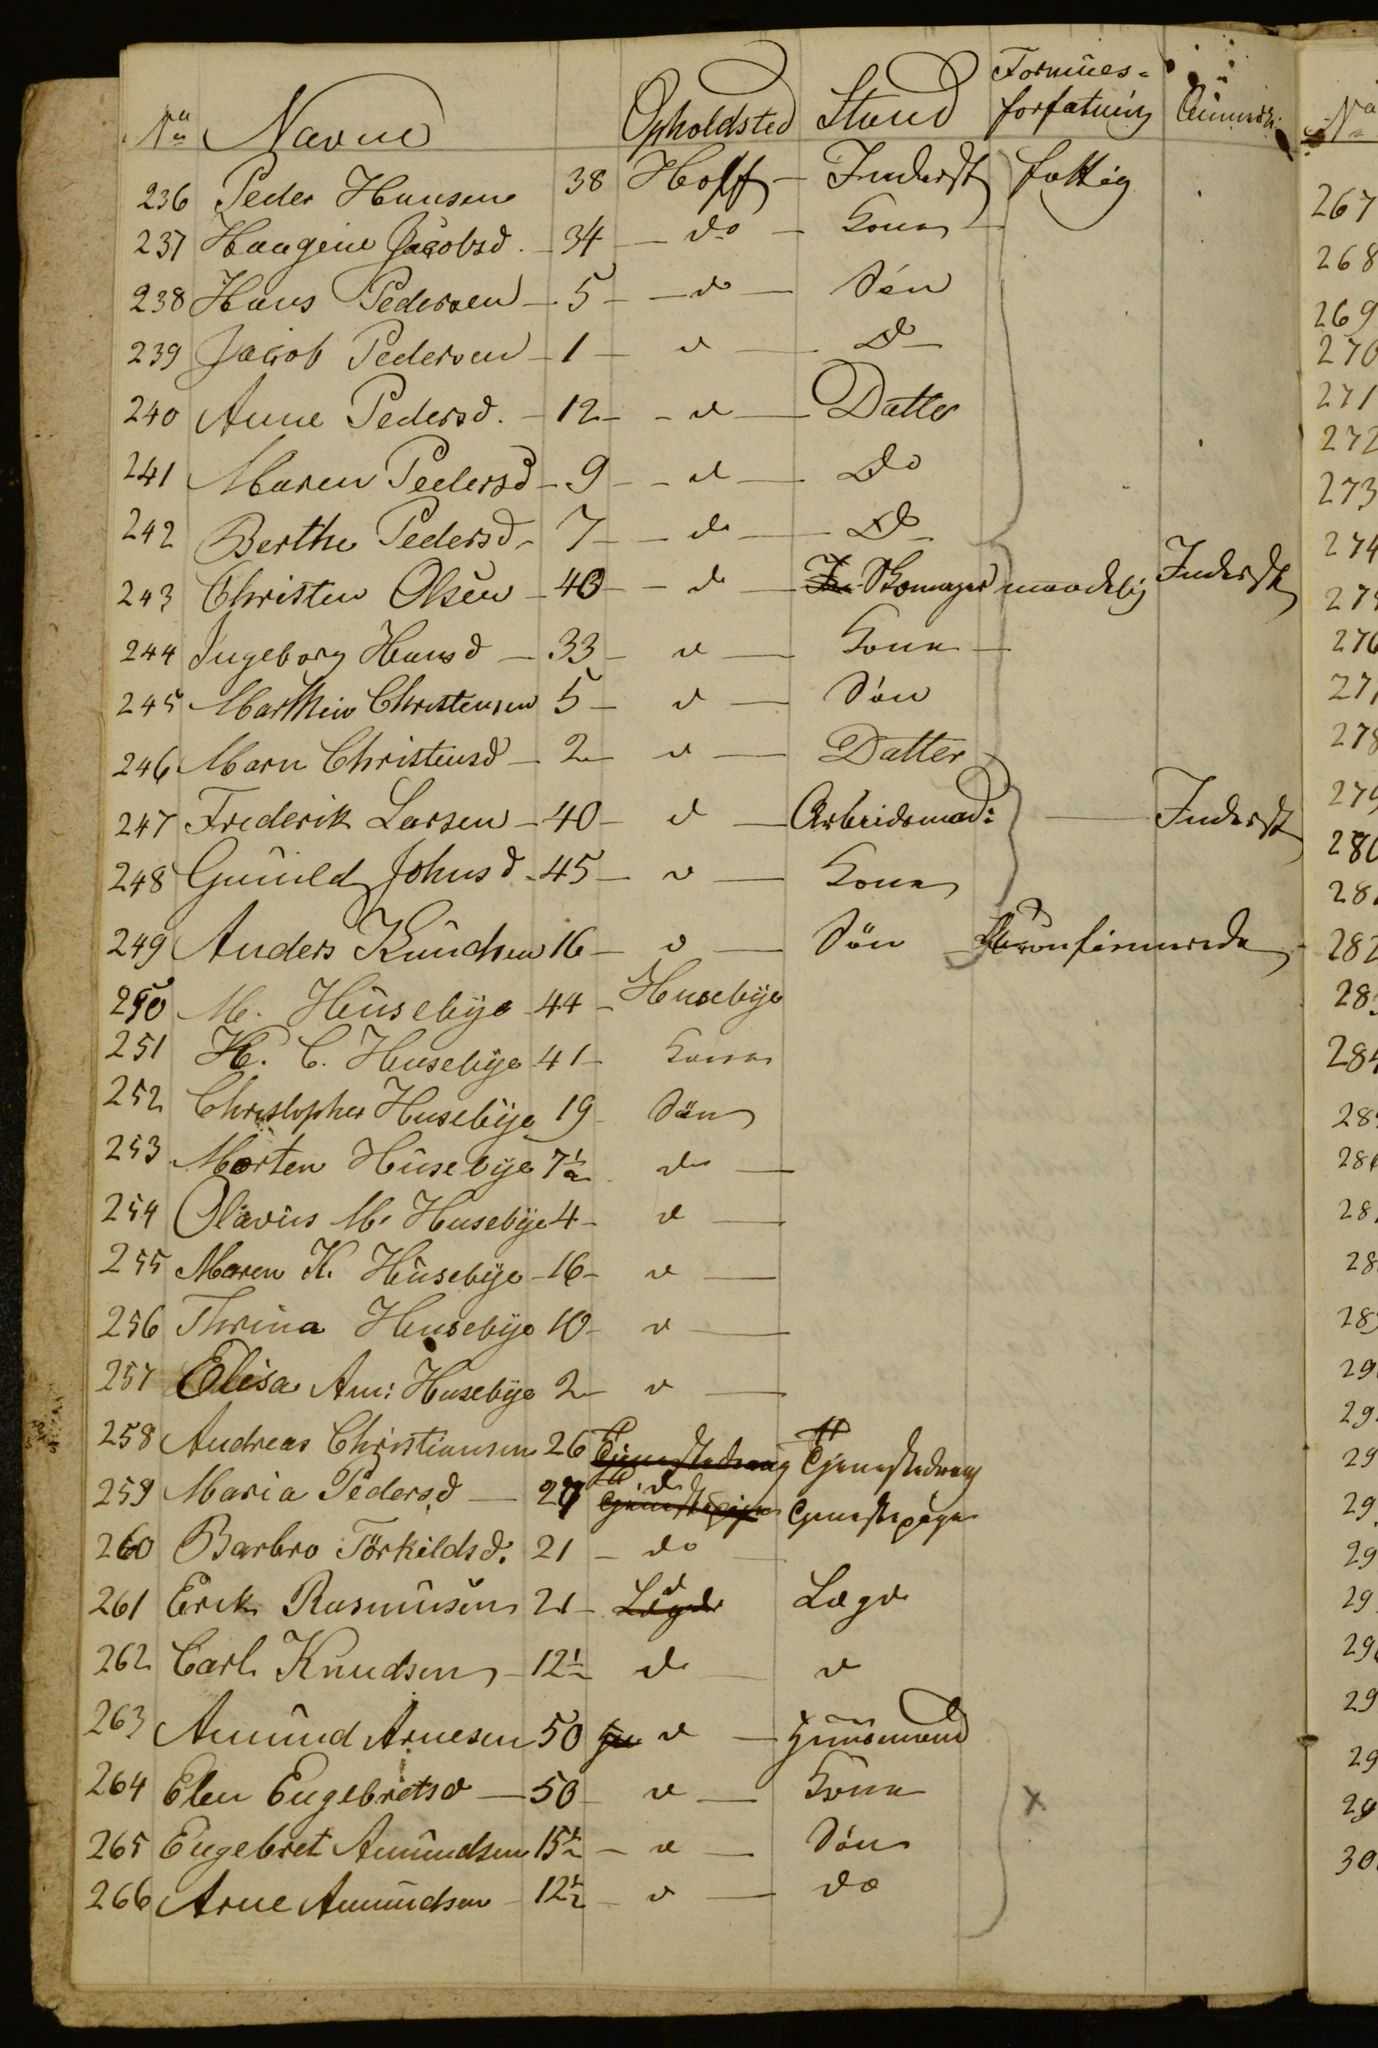 No Navne Opholdsted Stand Formues= forfatning Anmærk.
236 Peder Hansen 38 Hoff Inderst fattig
237 Haagine Jacobsd. 34 do Kone
238 Hans Pedersen 5 do Søn
239 Jacob Pedersen 1 d Do
240 Anne Pedersd. 12 d Datter
241 Maren Pedersd 9 d Do
242 Berthe Pedersd 7 do Do
243 Christen Olsen 40 d Skomager maadelig Inderst
244 Ingeborg Hansd 33 d Kone
245 Marthin Christensen 5 d Søn
246 Marn Christensd 2 d Datter
247 Frederik Larsen 40 d Arbeidsmad: Inderst
248 Gunild Johnsd 45 d Kone
249 Anders Knudsen 16 d Søn confirmerede
250 M. Husebye 44 Husebye
251 K. C. Husebye 41 Kone
252 Christopher Husebye 19 Søn
253 Morten Husebye 7½ do
254 Olavus M. Husebye 4 d
255 Maren K. Husebye 16 d
256 Thrina Husebye 10 d
257 Elisa Am: Husebye 2 d
258 Andreas Christiansen 26 Tjenestedreng Tjenestedreng
259 Maria Pedersd 27 Tjenestepige do Tjenestepige
260 Barbro Törkildsd. 21 do
261 Erik Rasmusen 21 Lægd d Lægd
262 Carl Knudsen 12½ do d
263 Amund Arnesen 50 d Huusmand
264 Elen Engebretsd 50 d Kone
265 Engebret Amundsen 15½ d Søn
266 Arne Amundsen 12½ d do
No
267
268
269
270
271
272
273
274
276
278
279
282